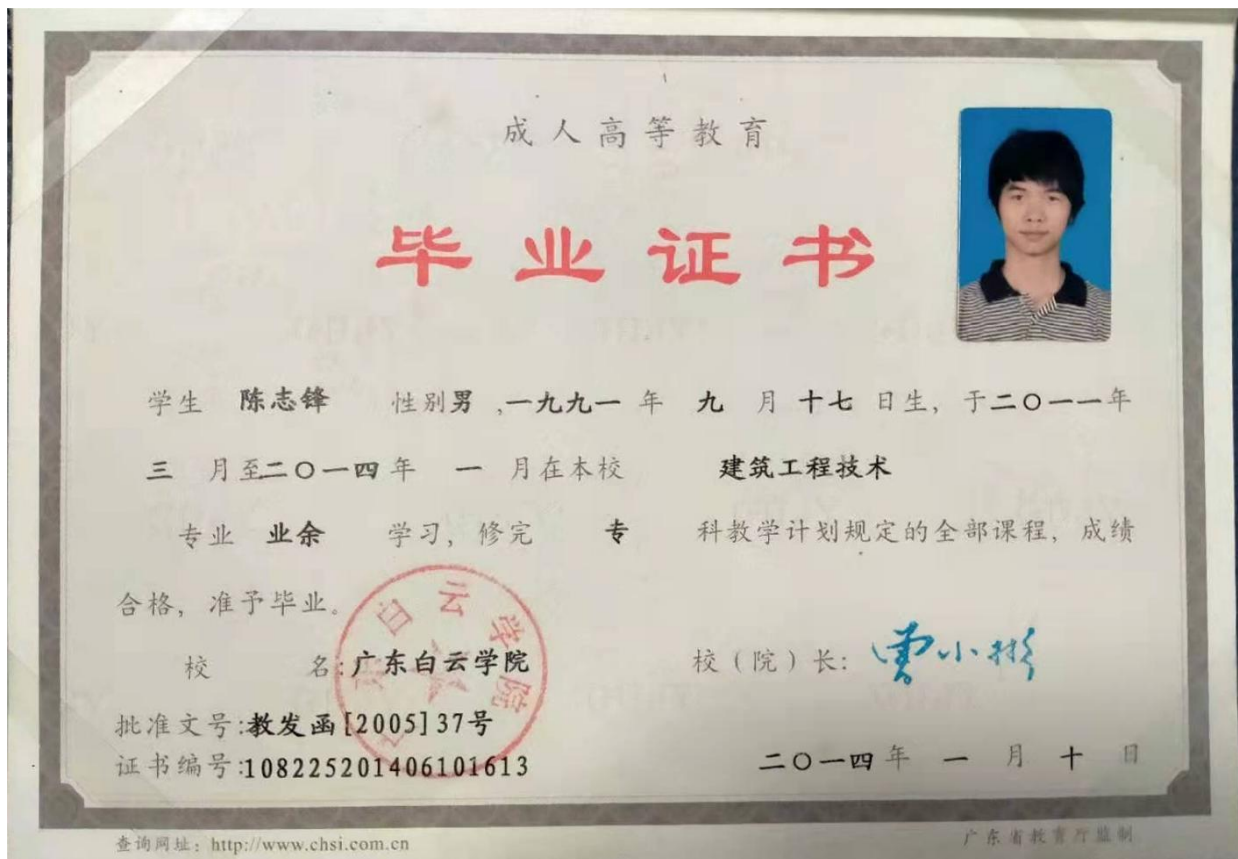 成人高等教育
毕业证书
学生 陈志锋 性别男,一九九一年 九 月十七日生，于二〇一一年
三 月至二〇一四年 一 月在本校 建筑工程技术
专业 业余 学习，修完 专 科教学计划规定的全部课程，成绩
合格，准予毕业。
校 名:广东白云学院
校（院）长: 曹小彬
批准文号:教发函[2005]37号
证书编号:108225201406101613
二〇一四年 一 月 十 日
查询网址：http://www.chsi.com.cn
广东省教育厅监制
广东白云学院